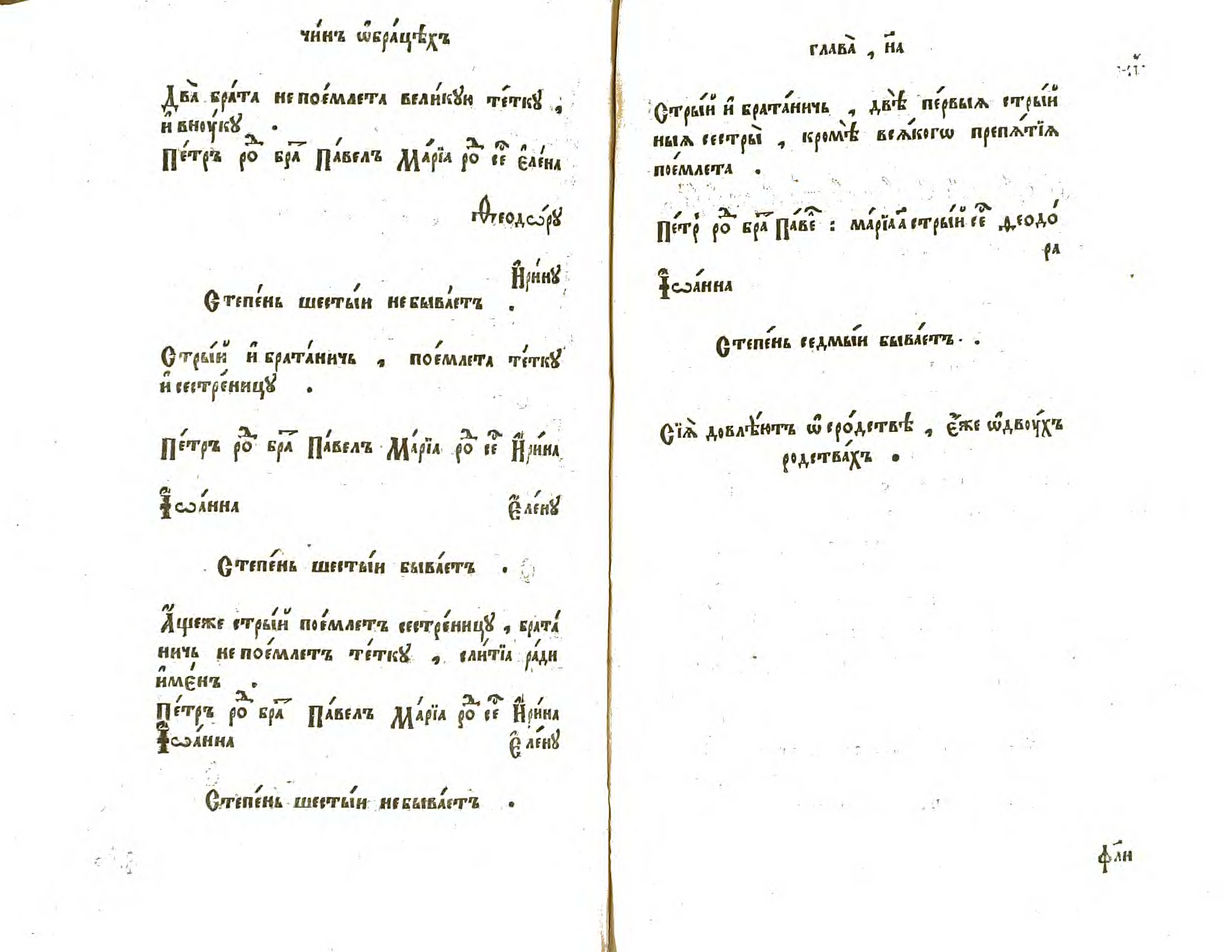 чи́нъ ѡ҆бра́цѣхъ
Два̀ бра́та не пое́млета вели́кую те́тку ,
и҆ вноу́ку .
Пе́тръ роⷣ браⷮ Па́велъ Ма́рїа роⷣ сеⷭ Є҆ле́на
Ѳеодѡ́ру
И҆ри́ну
Степе́нь шесты́й не быва́етъ .
Стры́й и҆ брата́ничь , пое́млета те́тку
и҆ сестре́ницу .
Пе́тръ роⷣ браⷮ Па́велъ Ма́рїа роⷣ сеⷭ И҆ри́на
І҆ѡа́нна Є҆ле́ну
Степе́нь шесты́й быва́етъ .
А҆́ще же стры́й пое́млетъ сестре́ницу , брата́
ничь не пое́млетъ те́тку , сли́тїа ра́ди
и҆ме́нъ .
Пе́тръ роⷣ браⷮ Па́велъ Ма́рїа роⷣ сеⷭ И҆ри́на
І҆ѡа́нна Є҆ле́ну
Степе́нь шесты́й не быва́етъ .
глава̀ , н҃а
Стры́й и҆ брата́ничь , двѣ̀ пе́рвыѧ стры́й
ныѧ сестры̀ , кромѣ̀ всѧ́когѡ препѧ́тїѧ
пое́млета .
Пе́тр роⷣ браⷮ Па́веⷧ : ма́рїа а҃ стры́й сеⷭ Ѳеодо́
ра
І҆ѡа́нна
Степе́нь седмы́й быва́етъ .
Сїѧ̀ довлѣ́ютъ ѡ҆ сро́дствѣ , є҆́же ѿ двоу́хъ
родства́хъ .
ф҃ли